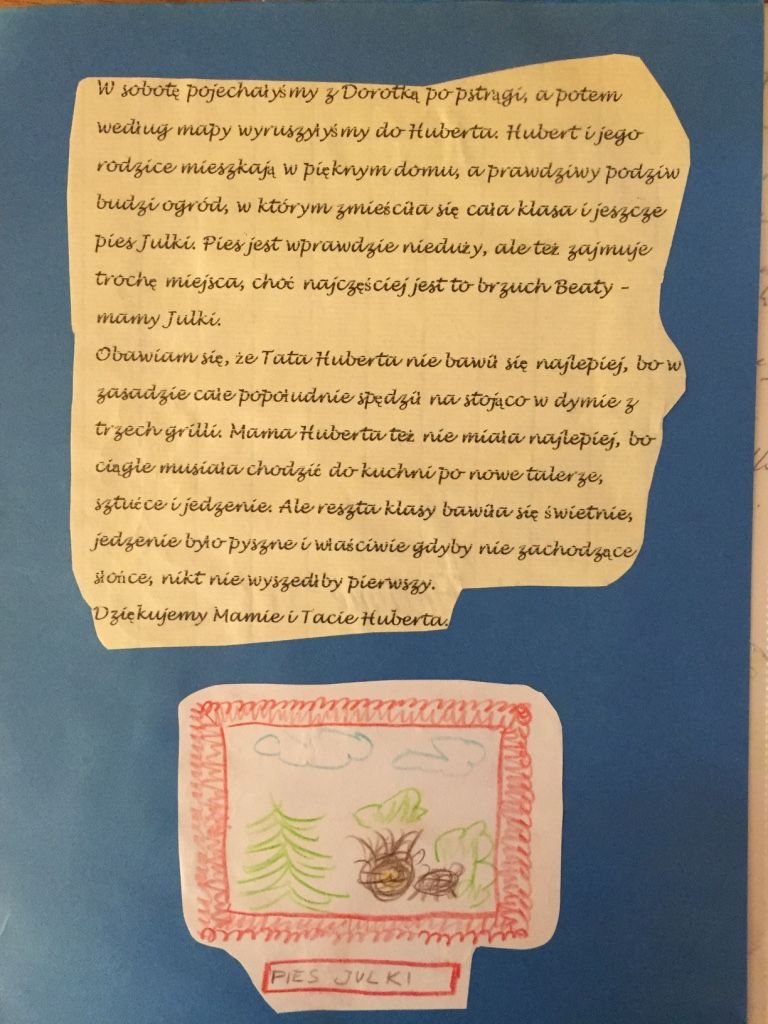 W sobotę pojechałyśmy z Dorotką po pstrągi, a potem
według mapy wyruszyłyśmy do Huberta. Hubert i jego
rodzice mieszkają w pięknym domu, a prawdziwy podziw
budzi ogród, w którym zmieściła się cała klasa i jeszcze
pies Julki. Pies jest wprawdzie nieduży, ale też zajmuje
trochę miejsca, choć najczęściej jest to brzuch Beaty -
mamy Julki.
Obawiam się, że Tata Huberta nie bawił się najlepiej, bo w
zasadzie całe popołudnie spędził na stojąco w dymie z
trzech grilli. Mama Huberta też nie miała najlepiej, bo
ciągle musiała chodzić do kuchni po nowe talerze,
sztućce i jedzenie. Ale reszta klasy bawiła się świetnie,
jedzenie było pyszne i właściwie gdyby nie zachodzące
słońce, nikt nie wyszedłby pierwszy.
Dziękujemy Mamie i Tacie Huberta.
PIES JULKI